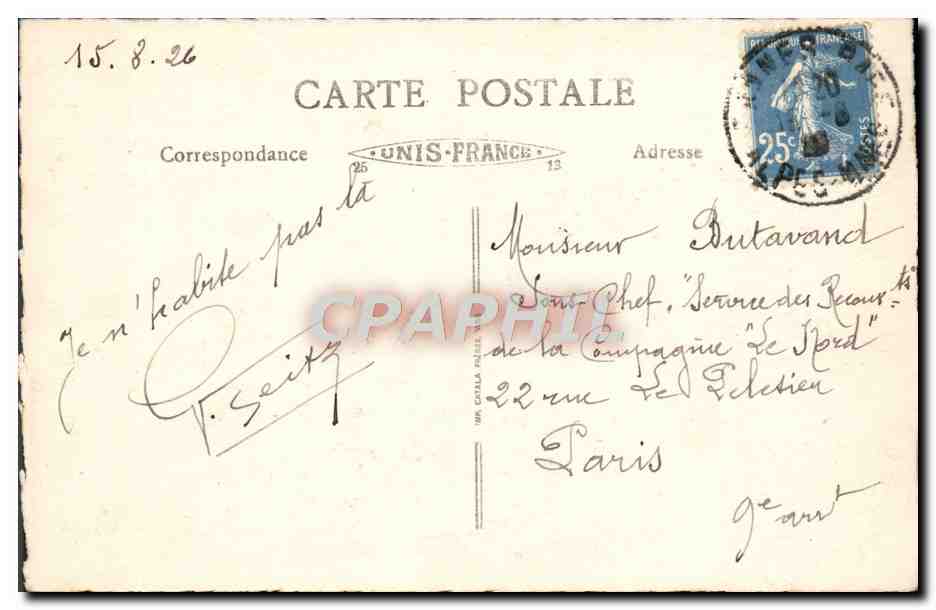 15.8.26
CARTE POSTALE
Correspondance
UNIS-FRANCE
25 13
Adresse
REPUBLIQUE FRANÇAISE
25c
POSTES
ALPES-M
Je n'habite pas là
Seitz
Monsieur Butavand
Sous-Chef, "Service des Recouv-ts
de la Compagnie "Le Nord"
22 rue Le Peletier
Paris
9e arrt
IMP. CATALA FRÈRES
CPAPHIL